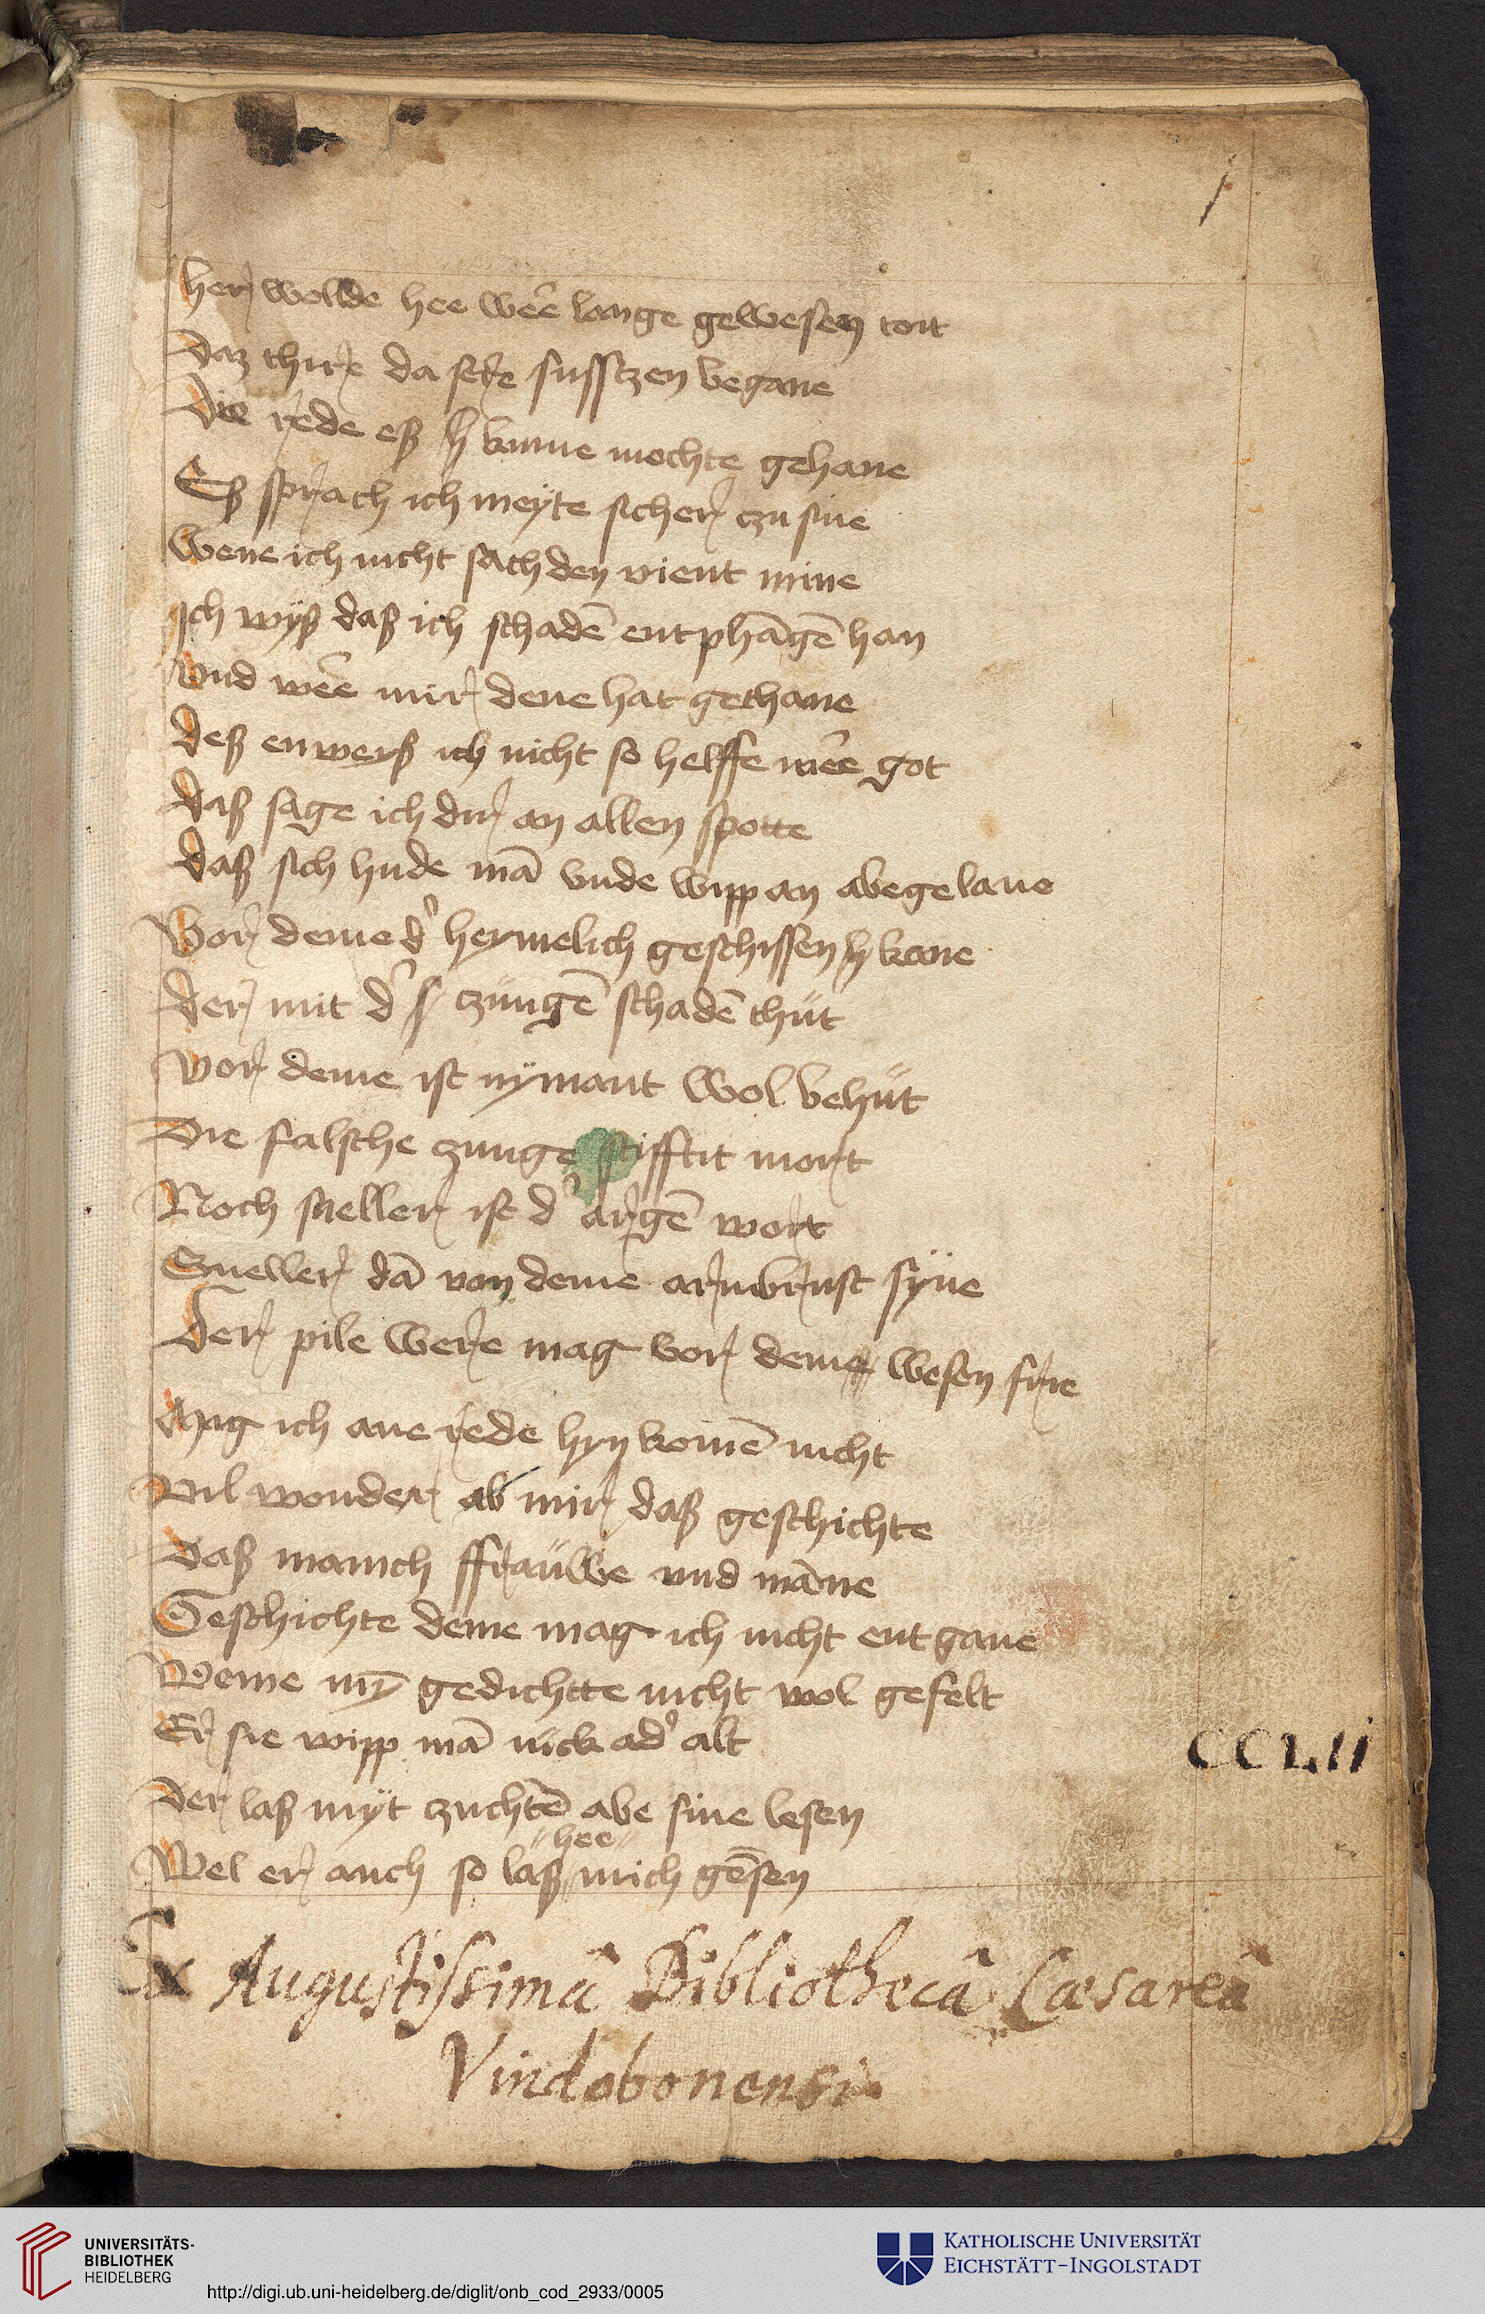 1
her wollde hee wēe lange gewesen toit
Daz thire da sere sufftzen begane
Die rede eß kume mochte gehane
Eß sprach ich meÿte sicher czu sine
Wene ich nicht sach den vient mine
Ich wÿß daß ich schadē entphāgē han
Vnd wēe mir dene hat gethane
deß enweyß ich nicht so helffe mēe got
daß sage ich dir an allen spotte
daß sich hude mā vnde wipp an abegelane
Vor deme d' heymelich geschissen kane
der mit d' czungē schadē thüt
vor deme ist nÿmant wol behüt
Die falsche zunge stifftit mort
Noch sneller ist d' argē wort
Sneller dā von deme armbrust sÿne
Der pile were mag vor deme wesen frie
Mag ich ane rede hyn komē nicht
Vil wonder ab mir daß geschichte
Daß manich ffrauwe vnd māne
Geschichte deme mag ich nicht entgane
Weme mȳ gedichtte nicht wol gefelt
Er sie wipp mā iück ad' alt
Der laß mÿt zuchtē abe sine lesen
hee
Wel er auch so laß mich gēsen
CCLII
Ex Augustissimâ Bibliothecâ Cæsareâ
Vindobonensi.
UNIVERSITÄTS-
BIBLIOTHEK
HEIDELBERG
http://digi.ub.uni-heidelberg.de/diglit/onb_cod_2933/0005
KATHOLISCHE UNIVERSITÄT
EICHSTÄTT-INGOLSTADT